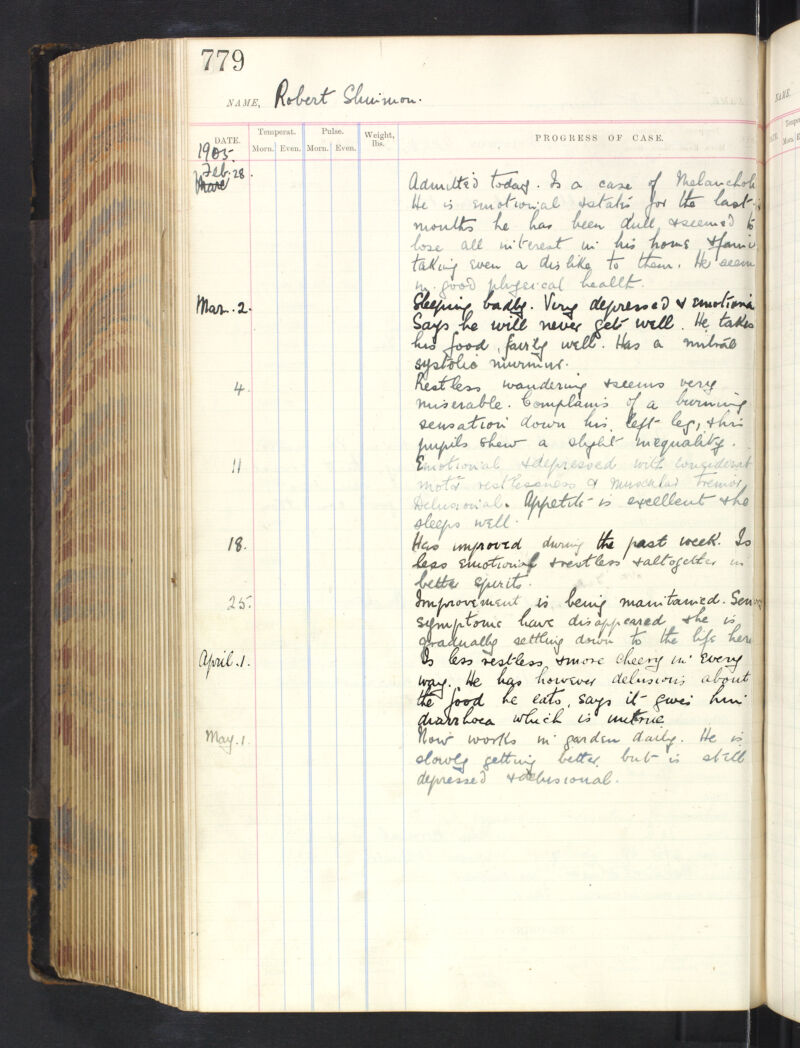 779
NAME, Robert
DATE. Temperat. Pulse. Weight, lbs. PROGRESS OF CASE.
Morn. Even. Morn. Even.
1905.
Feb. 28. Admitted today. Is a case of Melanchol
He is emotional & states for the last
months he has been dull & seemed to
lose all interest in his home & fami
taking even a dislike to them. He seem
in good physical health.
Mar. 2. Sleeping badly. Very depressed & emotiona
Says he will never get well. He takes
his food fairly well. Has a mitral
systolic murmur.
4. Restless wandering & seems very
miserable. Complains of a burning
sensation down his left leg, & his
pupils shew a slight inequality.
11 Emotional & depressed with considerab
motor restlessness & muscular tremor
Delusional. Appetite is excellent & he
sleeps well.
18. Has improved during the past week. Is
less emotional & restless & altogether in
better spirits.
25. Improvement is being maintained.
symptoms have disappeared & he is
gradually settling down to the life here
April. 1. Is less restless & more cheery in every
way. He has however delusions about
the food he eats, says it gives him
diarrhoea which is untrue.
May. 1. Now works in garden daily. He is
slowly getting better but is still
depressed & delusional.
NAME.